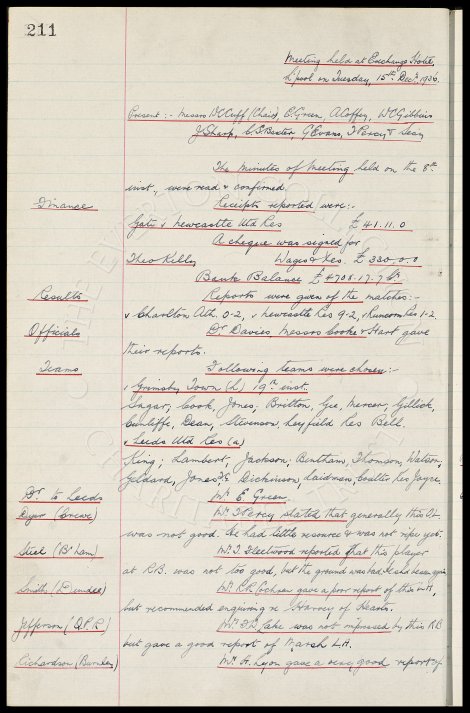 211
Meeting held at Exchange Hotel,
L'pool on Tuesday, 15th Decr, 1936.
Present :- Messrs W.C. Cuff (Chair), E. Green, A. Coffey, W.C. Gibbins
J. Sharp, C.S. Baxter, G. Evans, T. Percy & Secy
The Minutes of Meeting held on the 8th
inst, were read & confirmed.
Finance Receipts reported were:-
Gate v Newcastle Utd Res £41.11.0
A cheque was signed for
Theo Kelly Wages & Xes. £330.0.0
Bank Balance £4708.17.7
Results Reports were given of the matches:-
v Charlton Ath. 0-2, v Newcastle Res 9-2, v Runcorn Res 1-2.
Officials Dr Davies, Messrs Cooke & Hart gave
their reports.
Teams Following teams were chosen:-
v Grimsby Town (L) 19th inst.
Sagar; Cook, Jones; Britton, Gee, Mercer; Gillick,
Cunliffe, Dean, Stevenson, Leyfield Res Bell.
v Leeds Utd Res (a)
King; Lambert, Jackson; Bentham, Thomson, Watson;
Geldard, Dickinson, Laidman, Coulter Res Joyce,
Dr. to Leeds Mr. E. Green.
Dyer (Crewe) Mr. Percy stated that generally this
was not good. He had little resource & was not ripe yet.
(B'ham) Mr. J. Fleetwood reported that this player
at R.B. was not too good, but the ground was bad
Smith (Dundee) Mr. Cochran gave a poor report of this
but recommended enquiring re Harvey of Hearts.
Jefferson (Q.P.R) Mr. Lake was not impressed by this R.B
but gave a good report of March L.H.
Richardson (Burnley) Mr. H. Lyon gave a very good report of